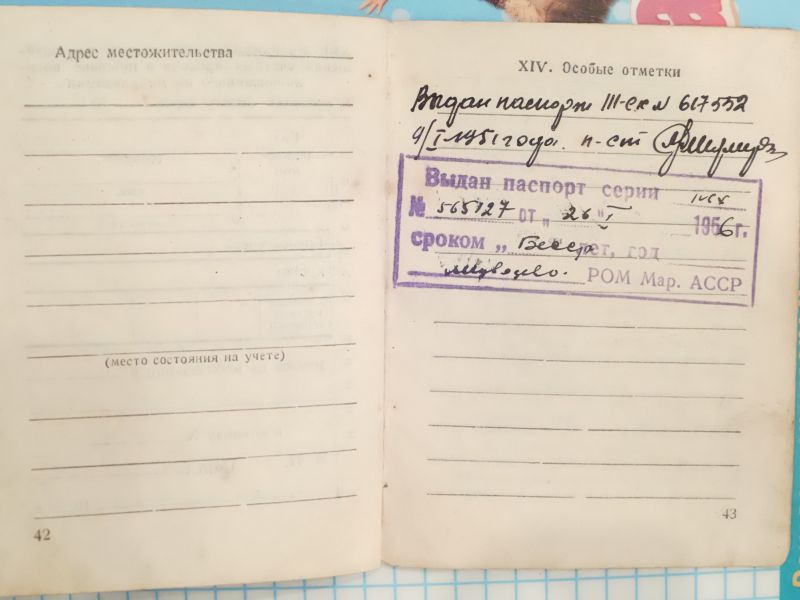 Адрес местожительства
(место состояния на учете)
42
XIV. Особые отметки
Выдан паспорт III-ск № 617552
9/I 1951 года. п-ст
Выдан паспорт серии
№ 565127 от „ 26 " I 1956 г.
сроком „ Бесср лет, год
Медведево. РОМ Мар. АССР
43